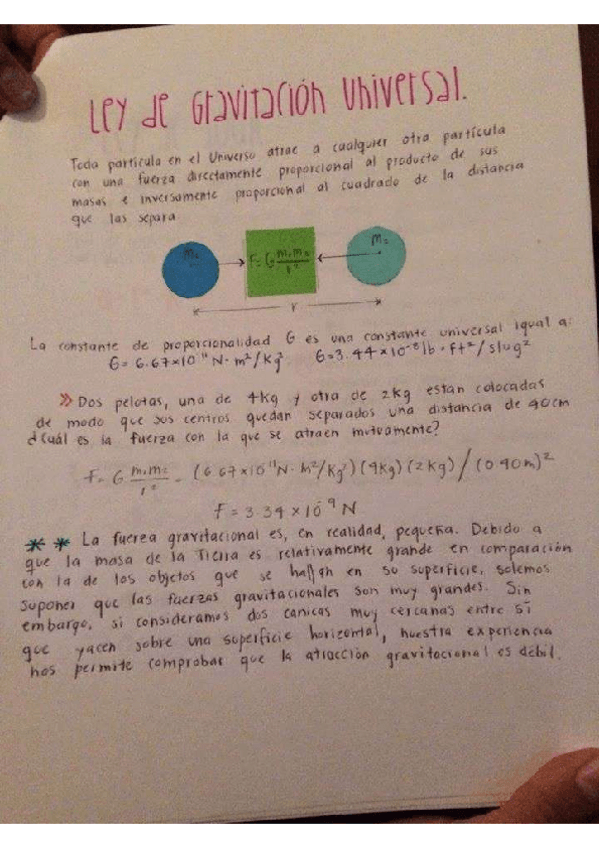 Ley de Gravitación Universal.
Toda partícula en el Universo atrae a cualquier otra partícula
con una fuerza directamente proporcional al producto de sus
masas e inversamente proporcional al cuadrado de la distancia
que las separa
m₁ F=G m₁m₂/r² m₂
r
La constante de proporcionalidad G es una constante universal igual a:
G=6.67×10⁻¹¹ N·m²/Kg² G=3.44×10⁻⁸ lb·ft²/slug²
» Dos pelotas, una de 4kg y otra de 2kg estan colocadas
de modo que sus centros quedan separados una distancia de 40cm
¿Cuál es la fuerza con la que se atraen mutuamente?
F=G m₁m₂/r² = (6.67×10⁻¹¹N·m²/Kg²)(4Kg)(2Kg)/(0.40m)²
F=3.34×10⁻⁹N
** La fuerza gravitacional es, en realidad, pequeña. Debido a
que la masa de la Tierra es relativamente grande en comparación
con la de los objetos que se hallan en su superficie, solemos
suponer que las fuerzas gravitacionales son muy grandes. Sin
embargo, si consideramos dos canicas muy cercanas entre si
que yacen sobre una superficie horizontal, nuestra experiencia
nos permite comprobar que la atracción gravitacional es débil.